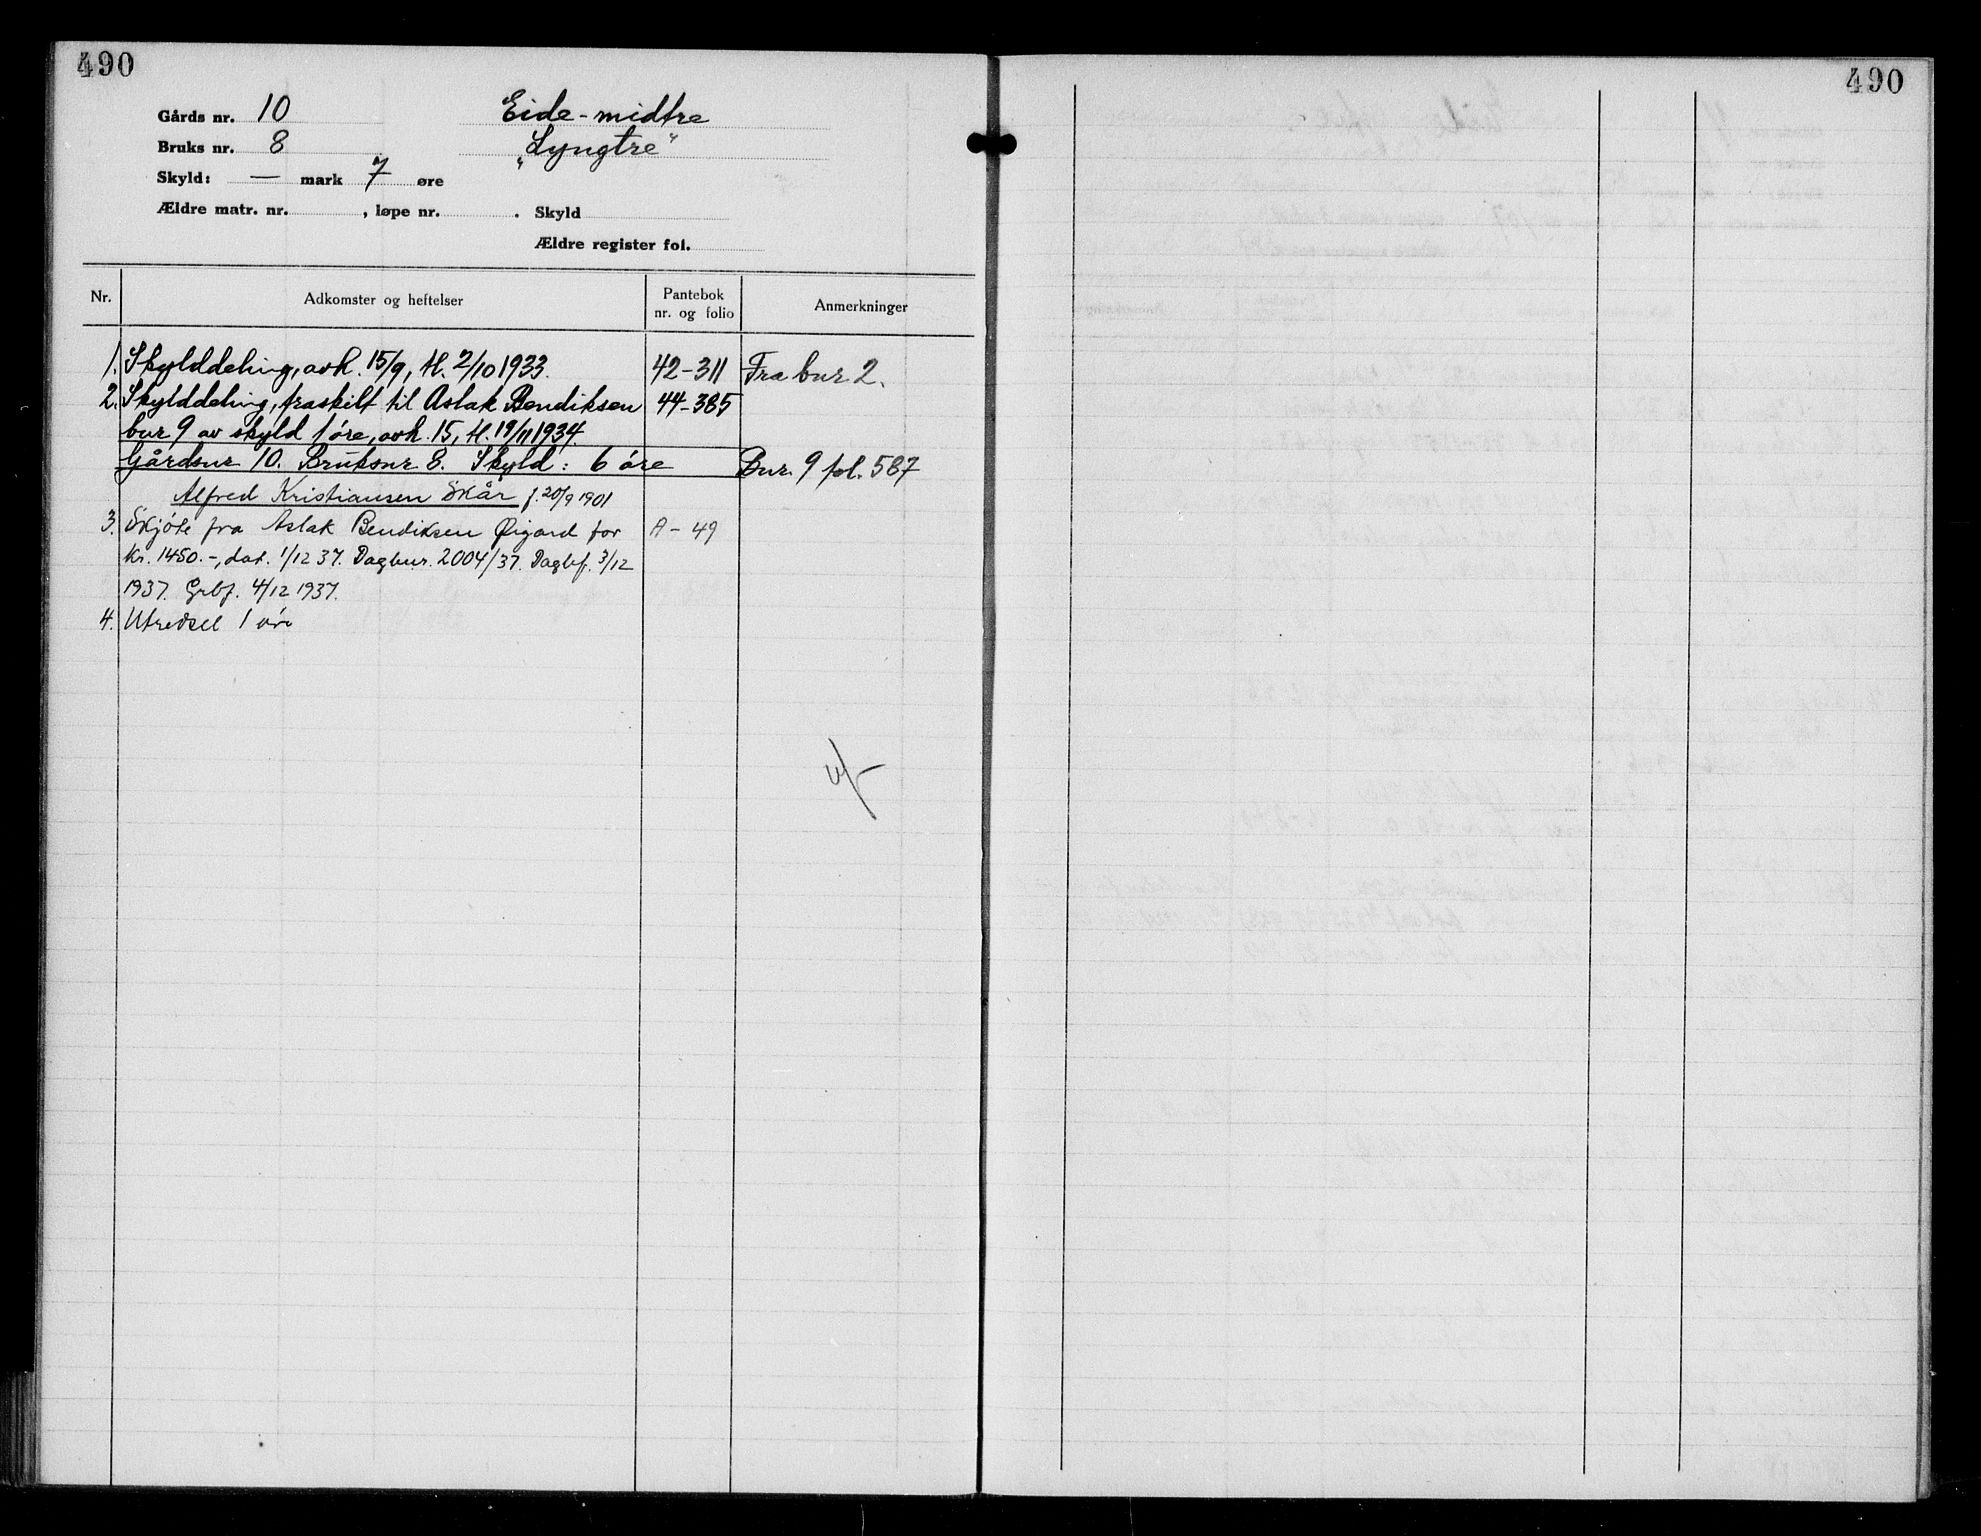 490
490
Gårds nr. 10 Eide-midtre
Bruks nr. 8 "Lyngtre"
Skyld: — mark 7 øre
Ældre matr. nr. , løpe nr. . Skyld
Ældre register fol.
Nr. Adkomster og heftelser Pantebok nr. og folio Anmerkninger
1. Skylddeling, avh. 15/9, tl. 2/10 1933. 42-311 Fra bnr. 2.
2. Skylddeling, fraskilt til Aslak Bendiksen 44-385
bnr 9 av skyld 1 øre, avh. 15, tl. 19/11 1934.
Gårdsnr 10. Bruksnr 8. Skyld: 6 øre Bnr. 9 fol. 587
Alfred Kristiansen Skår f. 20/9 1901
3. Skjøte fra Aslak Bendiksen Øigard for A-49
kr. 1450.-, dat. 1/12 37. Dagbnr. 2004/37. Dagbf. 3/12
1937. Grbf. 4/12 1937.
4. Utredsel 1 øre